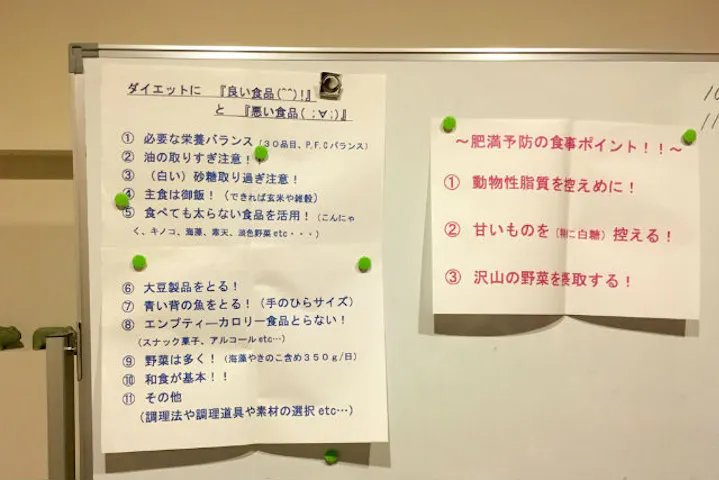 ダイエットに 『良い食品(^^)!』
と 『悪い食品( ;∀;)』
① 必要な栄養バランス(30品目、P,F,Cバランス)
② 油の取りすぎ注意!
③ (白い)砂糖取り過ぎ注意!
④ 主食は御飯!(できれば玄米や雑穀)
⑤ 食べても太らない食品を活用!(こんにゃ
く、キノコ、海藻、寒天、淡色野菜etc・・・)
⑥ 大豆製品をとる!
⑦ 青い背の魚をとる!(手のひらサイズ)
⑧ エンプティ―カロリー食品とらない!
(スナック菓子、アルコールetc…)
⑨ 野菜は多く!(海藻やきのこ含め350g/日)
⑩ 和食が基本!!
⑪ その他
(調理法や調理道具や素材の選択etc…)
~肥満予防の食事ポイント!!~
① 動物性脂質を控えめに!
② 甘いものを(特に白糖)控える!
③ 沢山の野菜を摂取する!
10
11